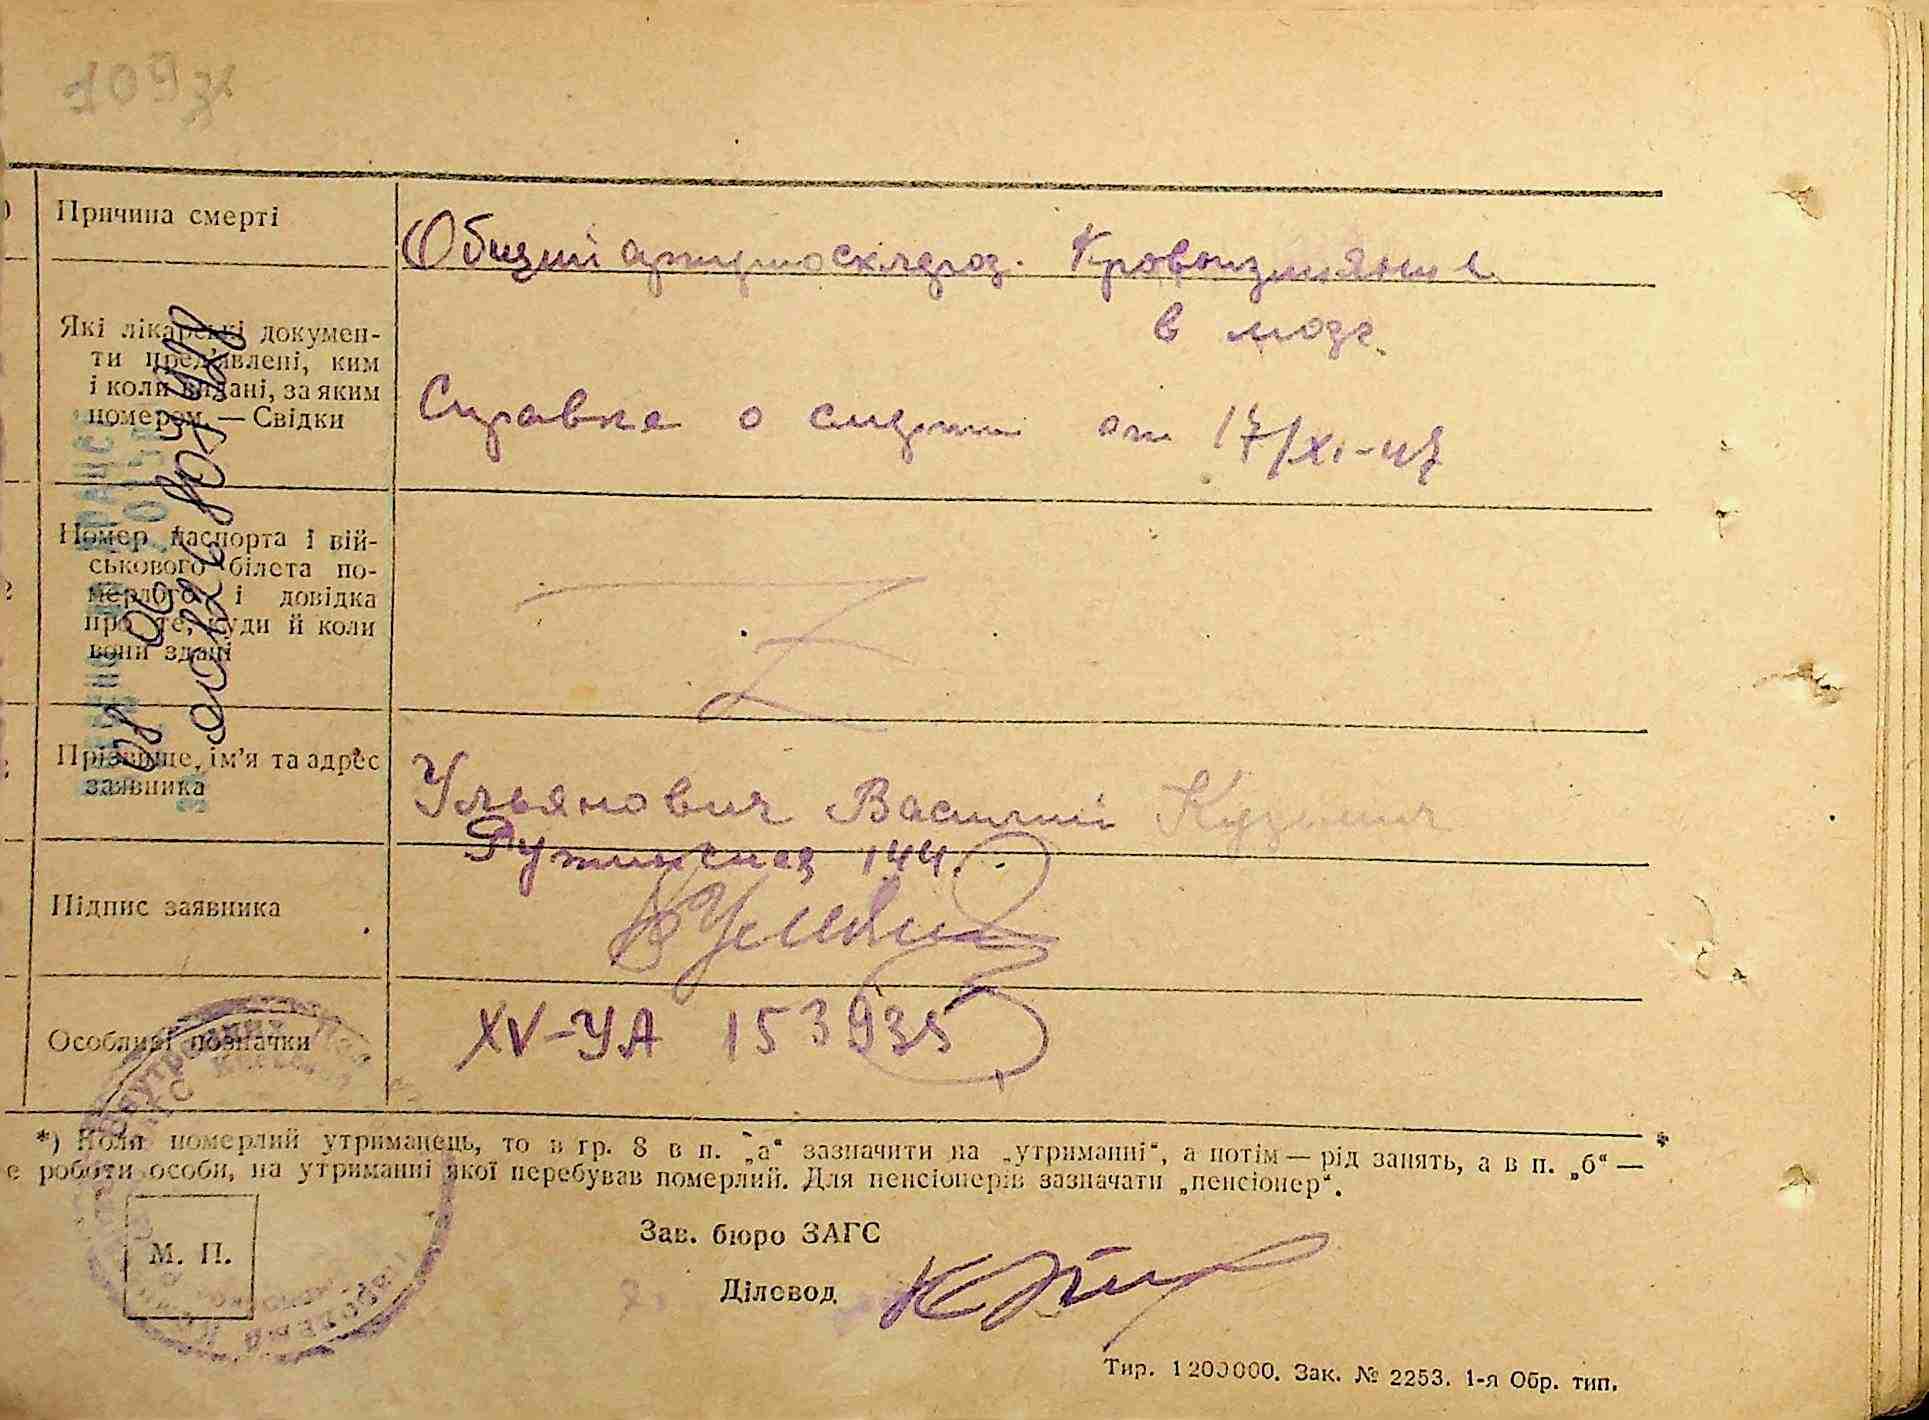 109
Причина смерті
Общий артериосклероз. Кровоизлияние
в мозг
Які лікарські докумен-
ти пред'явлені, ким
і коли видані, за яким
номером. — Свідки
Справка о смерти от 17/XI-47
Номер паспорта і вій-
ськового білета по-
мерлого і довідка
про те, куди й коли
вони здані
Прізвище, ім'я та адрес
заявника
Ульянович Василий Кузьмич
144.
Підпис заявника
Особливі позначки
XV-УА 153935
*) Коли померлий утриманець, то в гр. 8 в п. „а“ зазначити на „утриманні“, а потім — рід занять, а в п. „б“ —
е роботи особи, на утриманні якої перебував померлий. Для пенсіонерів зазначати „пенсіонер“.
Зав. бюро ЗАГС
М. П.
Діловод
Тир. 1200000. Зак. № 2253. 1-я Обр. тип.